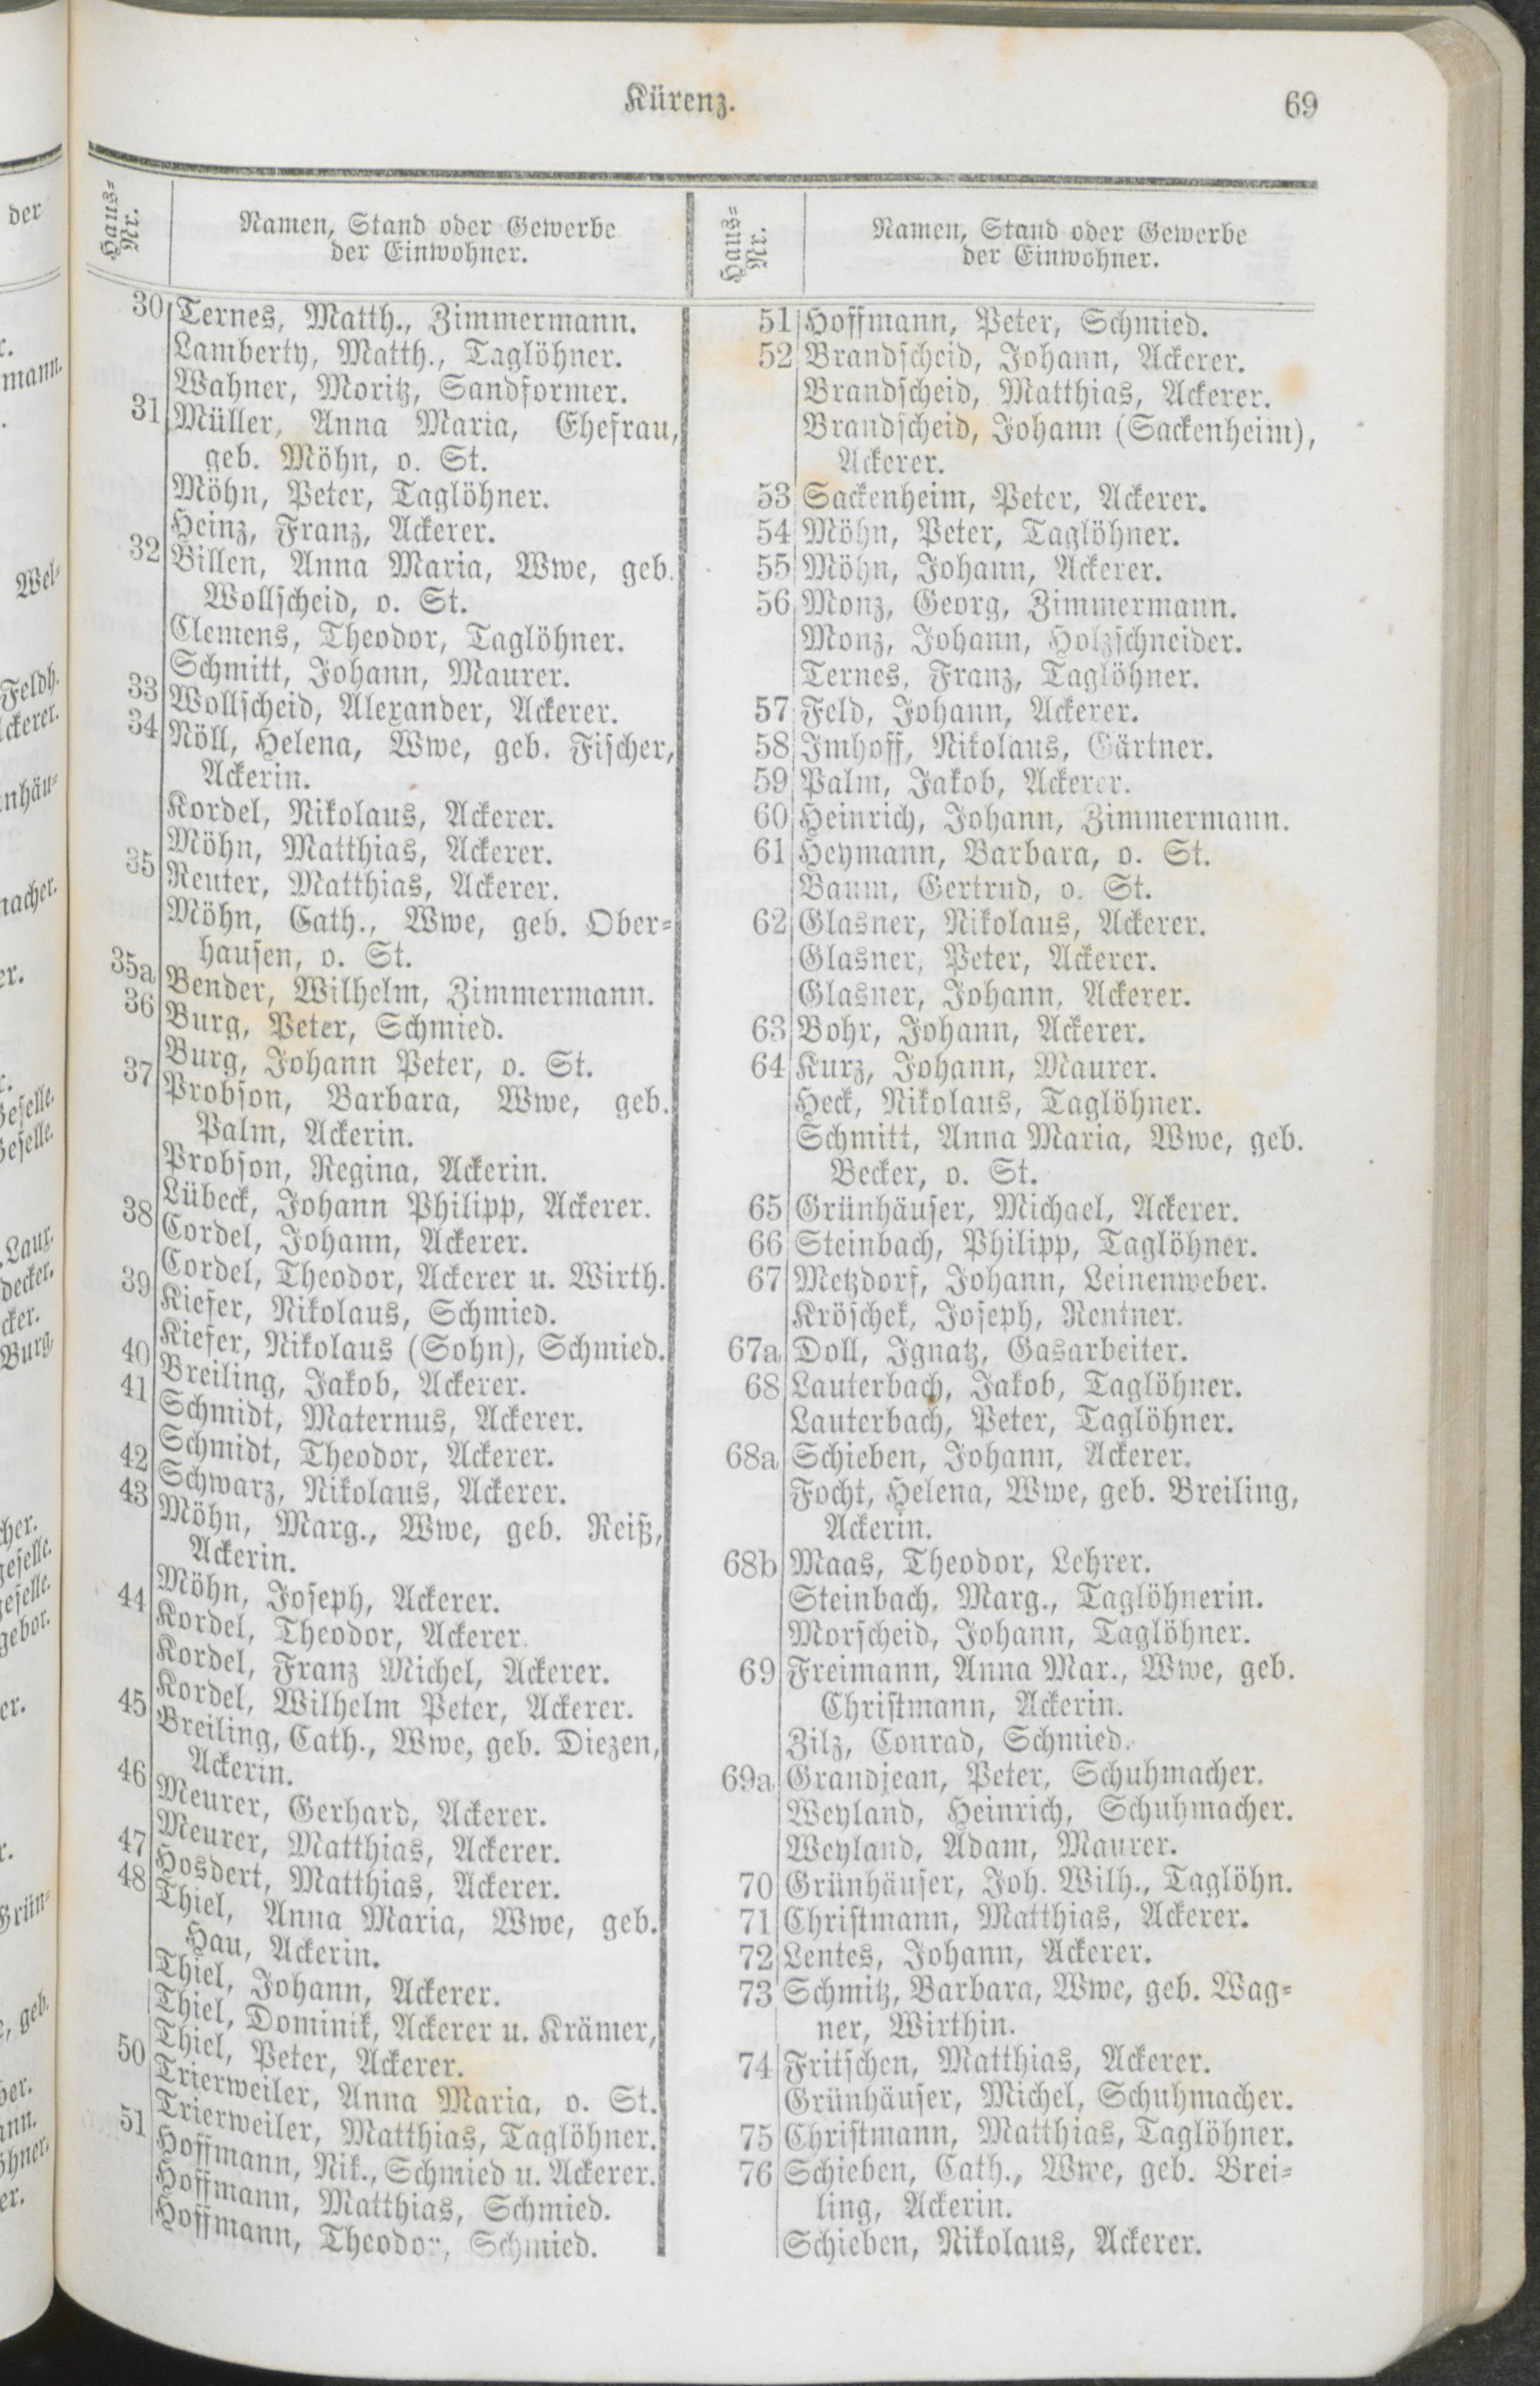 Kürenz.
69
Haus-
Nr.
Namen, Stand oder Gewerbe
der Einwohner.
30 Ternes, Matth., Zimmermann.
Lamberty, Matth., Taglöhner.
Wahner, Moritz, Sandformer.
31 Müller, Anna Maria, Ehefrau,
geb. Möhn, o. St.
Möhn, Peter, Taglöhner.
Heinz, Franz, Ackerer.
32 Billen, Anna Maria, Wwe, geb.
Wollscheid, o. St.
Clemens, Theodor, Taglöhner.
Schmitt, Johann, Maurer.
33 Wollscheid, Alexander, Ackerer.
34 Nöll, Helena, Wwe, geb. Fischer,
Ackerin.
Kordel, Nikolaus, Ackerer.
Möhn, Matthias, Ackerer.
35 Reuter, Matthias, Ackerer.
Möhn, Cath., Wwe, geb. Ober-
hausen, o. St.
35a Bender, Wilhelm, Zimmermann.
36 Burg, Peter, Schmied.
Burg, Johann Peter, o. St.
37 Probson, Barbara, Wwe, geb.
Palm, Ackerin.
Probson, Regina, Ackerin.
Lübeck, Johann Philipp, Ackerer.
38 Cordel, Johann, Ackerer.
Cordel, Theodor, Ackerer u. Wirth.
39 Kiefer, Nikolaus, Schmied.
Kiefer, Nikolaus (Sohn), Schmied.
40 Breiling, Jakob, Ackerer.
41 Schmidt, Maternus, Ackerer.
Schmidt, Theodor, Ackerer.
42 Schwarz, Nikolaus, Ackerer.
43 Möhn, Marg., Wwe, geb. Reiß,
Ackerin.
Möhn, Joseph, Ackerer.
44 Kordel, Theodor, Ackerer.
Kordel, Franz Michel, Ackerer.
Kordel, Wilhelm Peter, Ackerer.
45 Breiling, Cath., Wwe, geb. Diezen,
Ackerin.
46 Meurer, Gerhard, Ackerer.
Meurer, Matthias, Ackerer.
47 Hosdert, Matthias, Ackerer.
48 Thiel, Anna Maria, Wwe, geb.
Hau, Ackerin.
Thiel, Johann, Ackerer.
Thiel, Dominik, Ackerer u. Krämer,
Thiel, Peter, Ackerer.
50 Trierweiler, Anna Maria, o. St.
Trierweiler, Matthias, Taglöhner.
51 Hoffmann, Nik., Schmied u. Ackerer.
Hoffmann, Matthias, Schmied.
Hoffmann, Theodor, Schmied.
Haus-
Nr.
Namen, Stand oder Gewerbe
der Einwohner.
51 Hoffmann, Peter, Schmied.
52 Brandscheid, Johann, Ackerer.
Brandscheid, Matthias, Ackerer.
Brandscheid, Johann (Sackenheim),
Ackerer.
53 Sackenheim, Peter, Ackerer.
54 Möhn, Peter, Taglöhner.
55 Möhn, Johann, Ackerer.
56 Monz, Georg, Zimmermann.
Monz, Johann, Holzschneider.
Ternes, Franz, Taglöhner.
57 Feld, Johann, Ackerer.
58 Imhoff, Nikolaus, Gärtner.
59 Palm, Jakob, Ackerer.
60 Heinrich, Johann, Zimmermann.
61 Heymann, Barbara, o. St.
Baum, Gertrud, o. St.
62 Glasner, Nikolaus, Ackerer.
Glasner, Peter, Ackerer.
Glasner, Johann, Ackerer.
63 Bohr, Johann, Ackerer.
64 Kurz, Johann, Maurer.
Heck, Nikolaus, Taglöhner.
Schmitt, Anna Maria, Wwe, geb.
Becker, o. St.
65 Grünhäuser, Michael, Ackerer.
66 Steinbach, Philipp, Taglöhner.
67 Metzdorf, Johann, Leinenweber.
Kröschek, Joseph, Rentner.
67a Doll, Ignatz, Gasarbeiter.
68 Lauterbach, Jakob, Taglöhner.
Lauterbach, Peter, Taglöhner.
68a Schieben, Johann, Ackerer.
Focht, Helena, Wwe, geb. Breiling,
Ackerin.
68b Maas, Theodor, Lehrer.
Steinbach, Marg., Taglöhnerin.
Morscheid, Johann, Taglöhner.
69 Freimann, Anna Mar., Wwe, geb.
Christmann, Ackerin.
Zilz, Conrad, Schmied.
69a Grandjean, Peter, Schuhmacher.
Weyland, Heinrich, Schuhmacher.
Weyland, Adam, Maurer.
70 Grünhäuser, Joh. Wilh., Taglöhn.
71 Christmann, Matthias, Ackerer.
72 Lentes, Johann, Ackerer.
73 Schmitz, Barbara, Wwe, geb. Wag-
ner, Wirthin.
74 Fritschen, Matthias, Ackerer.
Grünhäuser, Michel, Schuhmacher.
75 Christmann, Matthias, Taglöhner.
76 Schieben, Cath., Wwe, geb. Brei-
ling, Ackerin.
Schieben, Nikolaus, Ackerer.